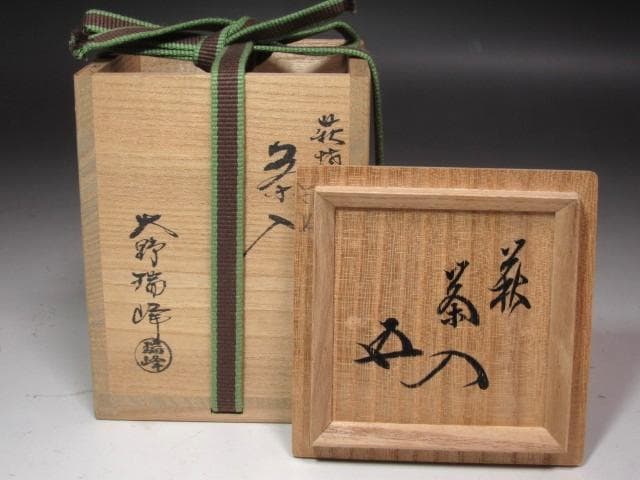 萩
茶入
大野瑞峰
瑞峰
萩
茶入